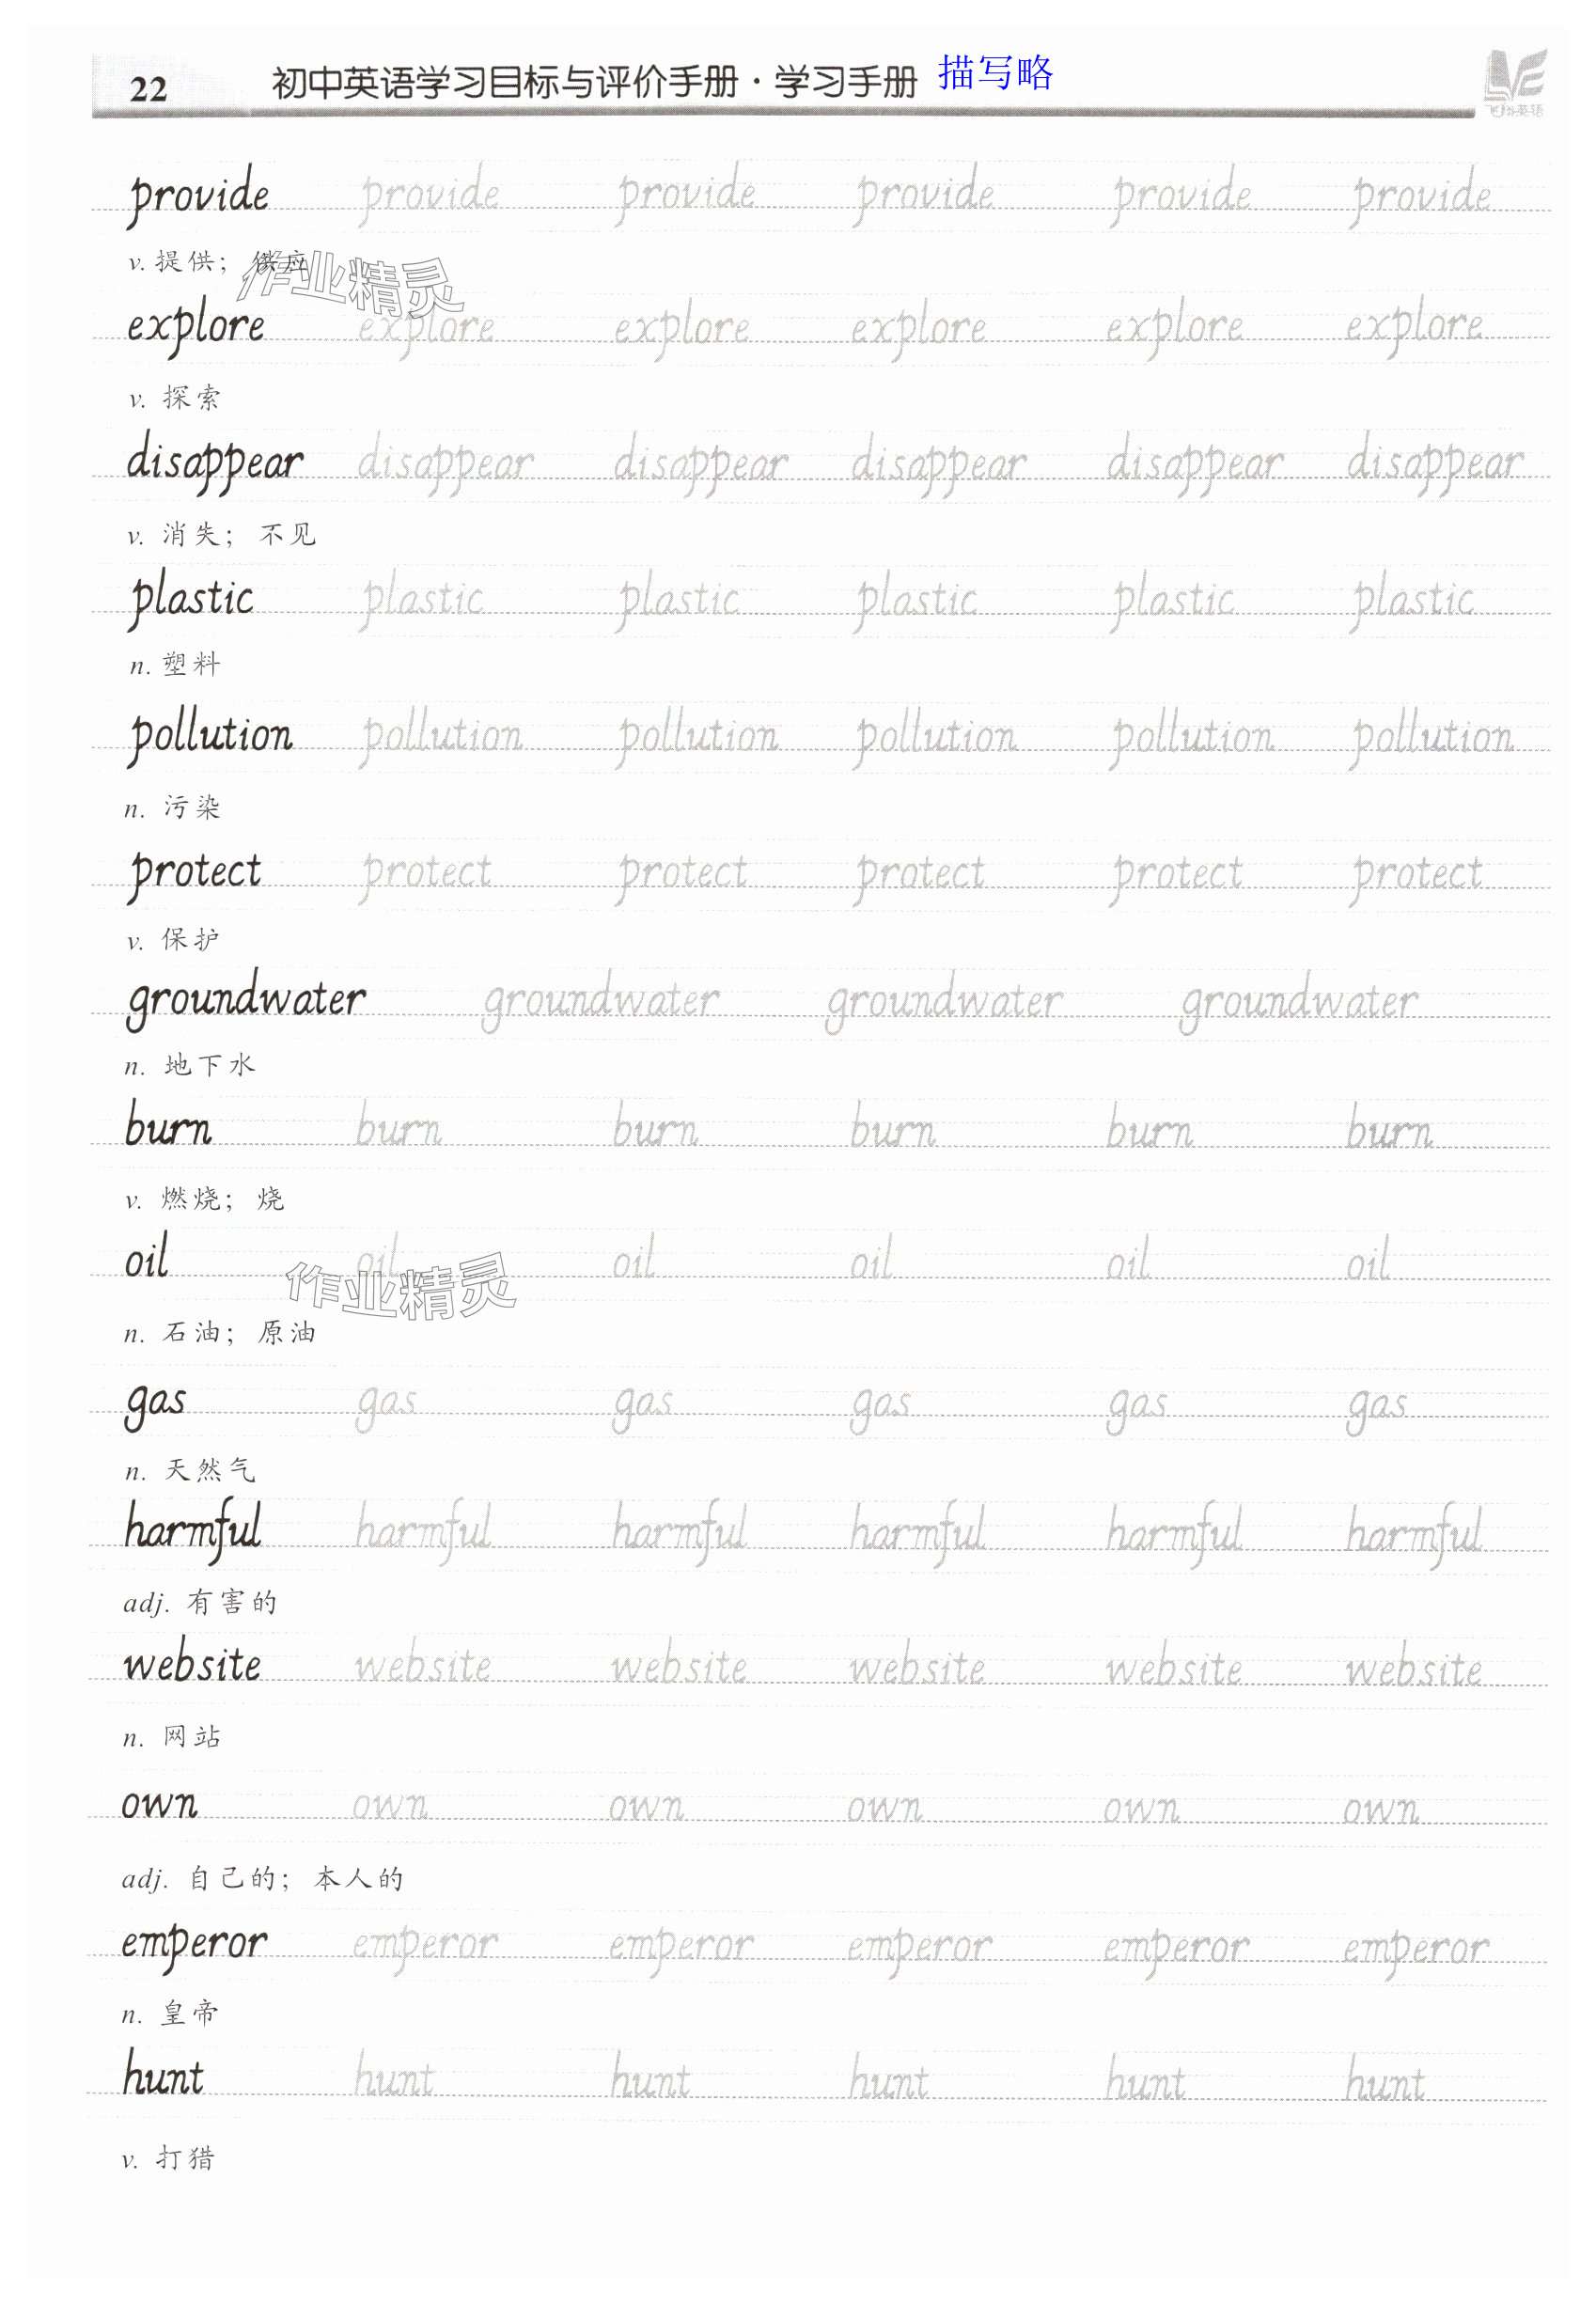 22 初中英语学习目标与评价手册·学习手册 描写略
飞翔英语
provide provide provide provide provide provide
v. 提供； 供应
作业精灵
explore explore explore explore explore explore
v. 探索
disappear disappear disappear disappear disappear disappear
v. 消失； 不见
plastic plastic plastic plastic plastic plastic
n. 塑料
pollution pollution pollution pollution pollution pollution
n. 污染
protect protect protect protect protect protect
v. 保护
groundwater groundwater groundwater groundwater
n. 地下水
burn burn burn burn burn burn
v. 燃烧； 烧
oil oil oil oil oil oil
作业精灵
n. 石油； 原油
gas gas gas gas gas gas
n. 天然气
harmful harmful harmful harmful harmful harmful
adj. 有害的
website website website website website website
n. 网站
own own own own own own
adj. 自己的； 本人的
emperor emperor emperor emperor emperor emperor
n. 皇帝
hunt hunt hunt hunt hunt hunt
v. 打猎